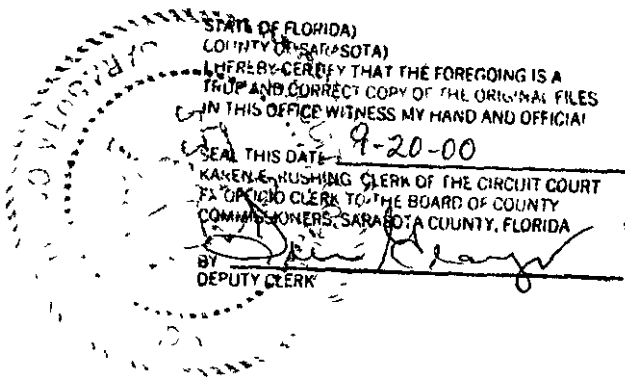 STATE OF FLORIDA)
COUNTY OF SARASOTA)
I HEREBY CERTIFY THAT THE FOREGOING IS A
TRUE AND CORRECT COPY OF THE ORIGINAL FILES
IN THIS OFFICE WITNESS MY HAND AND OFFICIAL
SEAL THIS DATE 9-20-00
KAREN E. RUSHING CLERK OF THE CIRCUIT COURT
EX OFFICIO CLERK TO THE BOARD OF COUNTY
COMMISSIONERS, SARASOTA COUNTY, FLORIDA
BY
DEPUTY CLERK
SARASOTA CO